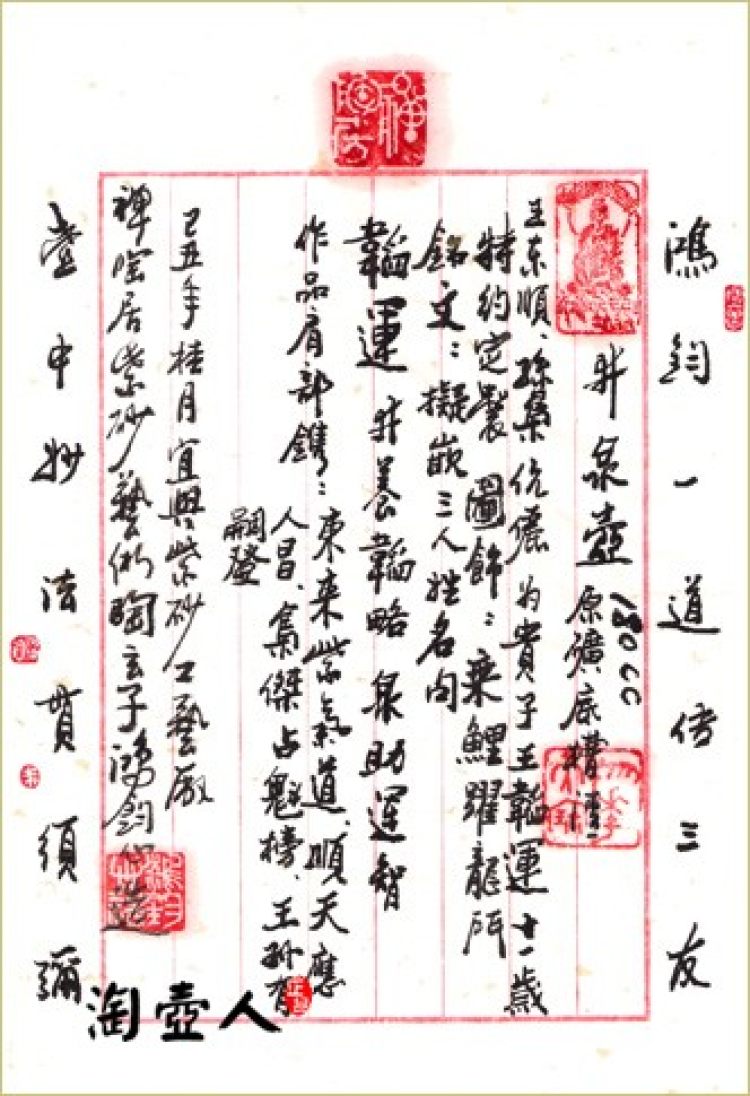 鴻鈞一道传三友
升泉壺 原礦底槽清 180CC
王东順、孫集伉儷为貴子王韜運十一歲
特約定製 圖飾：乘鯉躍龍門
銘文：擬嵌三人姓名句
韜運 升養韜略 泉助運智
作品肩部鐫：東来紫氣道、順天應
人昌、集傑占魁榜、王孙有
嗣登
己丑年桂月宜興紫砂工藝厰
禪居紫砂藝术陶玄子鴻鈞造
壺中妙法貫須彌
淘壺人